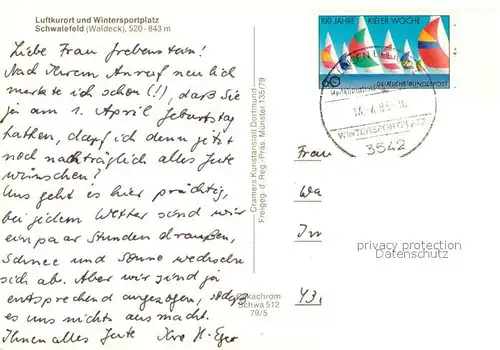 Luftkurort und Wintersportplatz
Schwalefeld (Waldeck), 520 - 843 m
Liebe Frau Grebenstein!
Nach Ihrem Anruf neulich
merkte ich schon (!), daß Sie
ja am 1. April Geburtstag
hatten, darf ich denn jetzt
noch nachträglich alles Gute
wünschen?
Uns geht es hier prächtig,
bei jedem Wetter sind wir
ein paar Stunden draußen,
Schnee und Sonne wechseln
sich ab. Aber wir sind ja
entsprechend angezogen, sodaß
es uns nichts aus macht.
Ihnen alles Gute Ihre H.
Cramers Kunstanstalt Dortmund
Freigeg. d. Reg.-Präs. Münster 135/79
Schwa 512
79/5
100 JAHRE KIELER WOCHE
60
DEUTSCHE BUNDESPOST
WINTERSPORTPLATZ
3542
Frau
Wa
In
43
privacy protection
Datenschutz